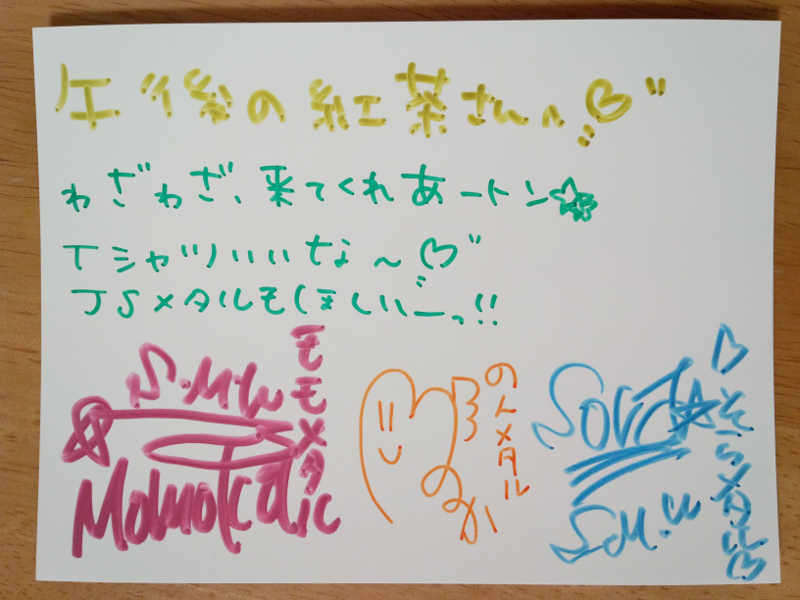 午後の紅茶さん♡
わざわざ、来てくれあートン☆
Tシャツいいな〜♡
JSメタルもほしいぃーっ!!
S.M.W
MOMOteALic
ももメタ
ののメタル
のの
SORA☆
S.M.W
♡そらメタル♡